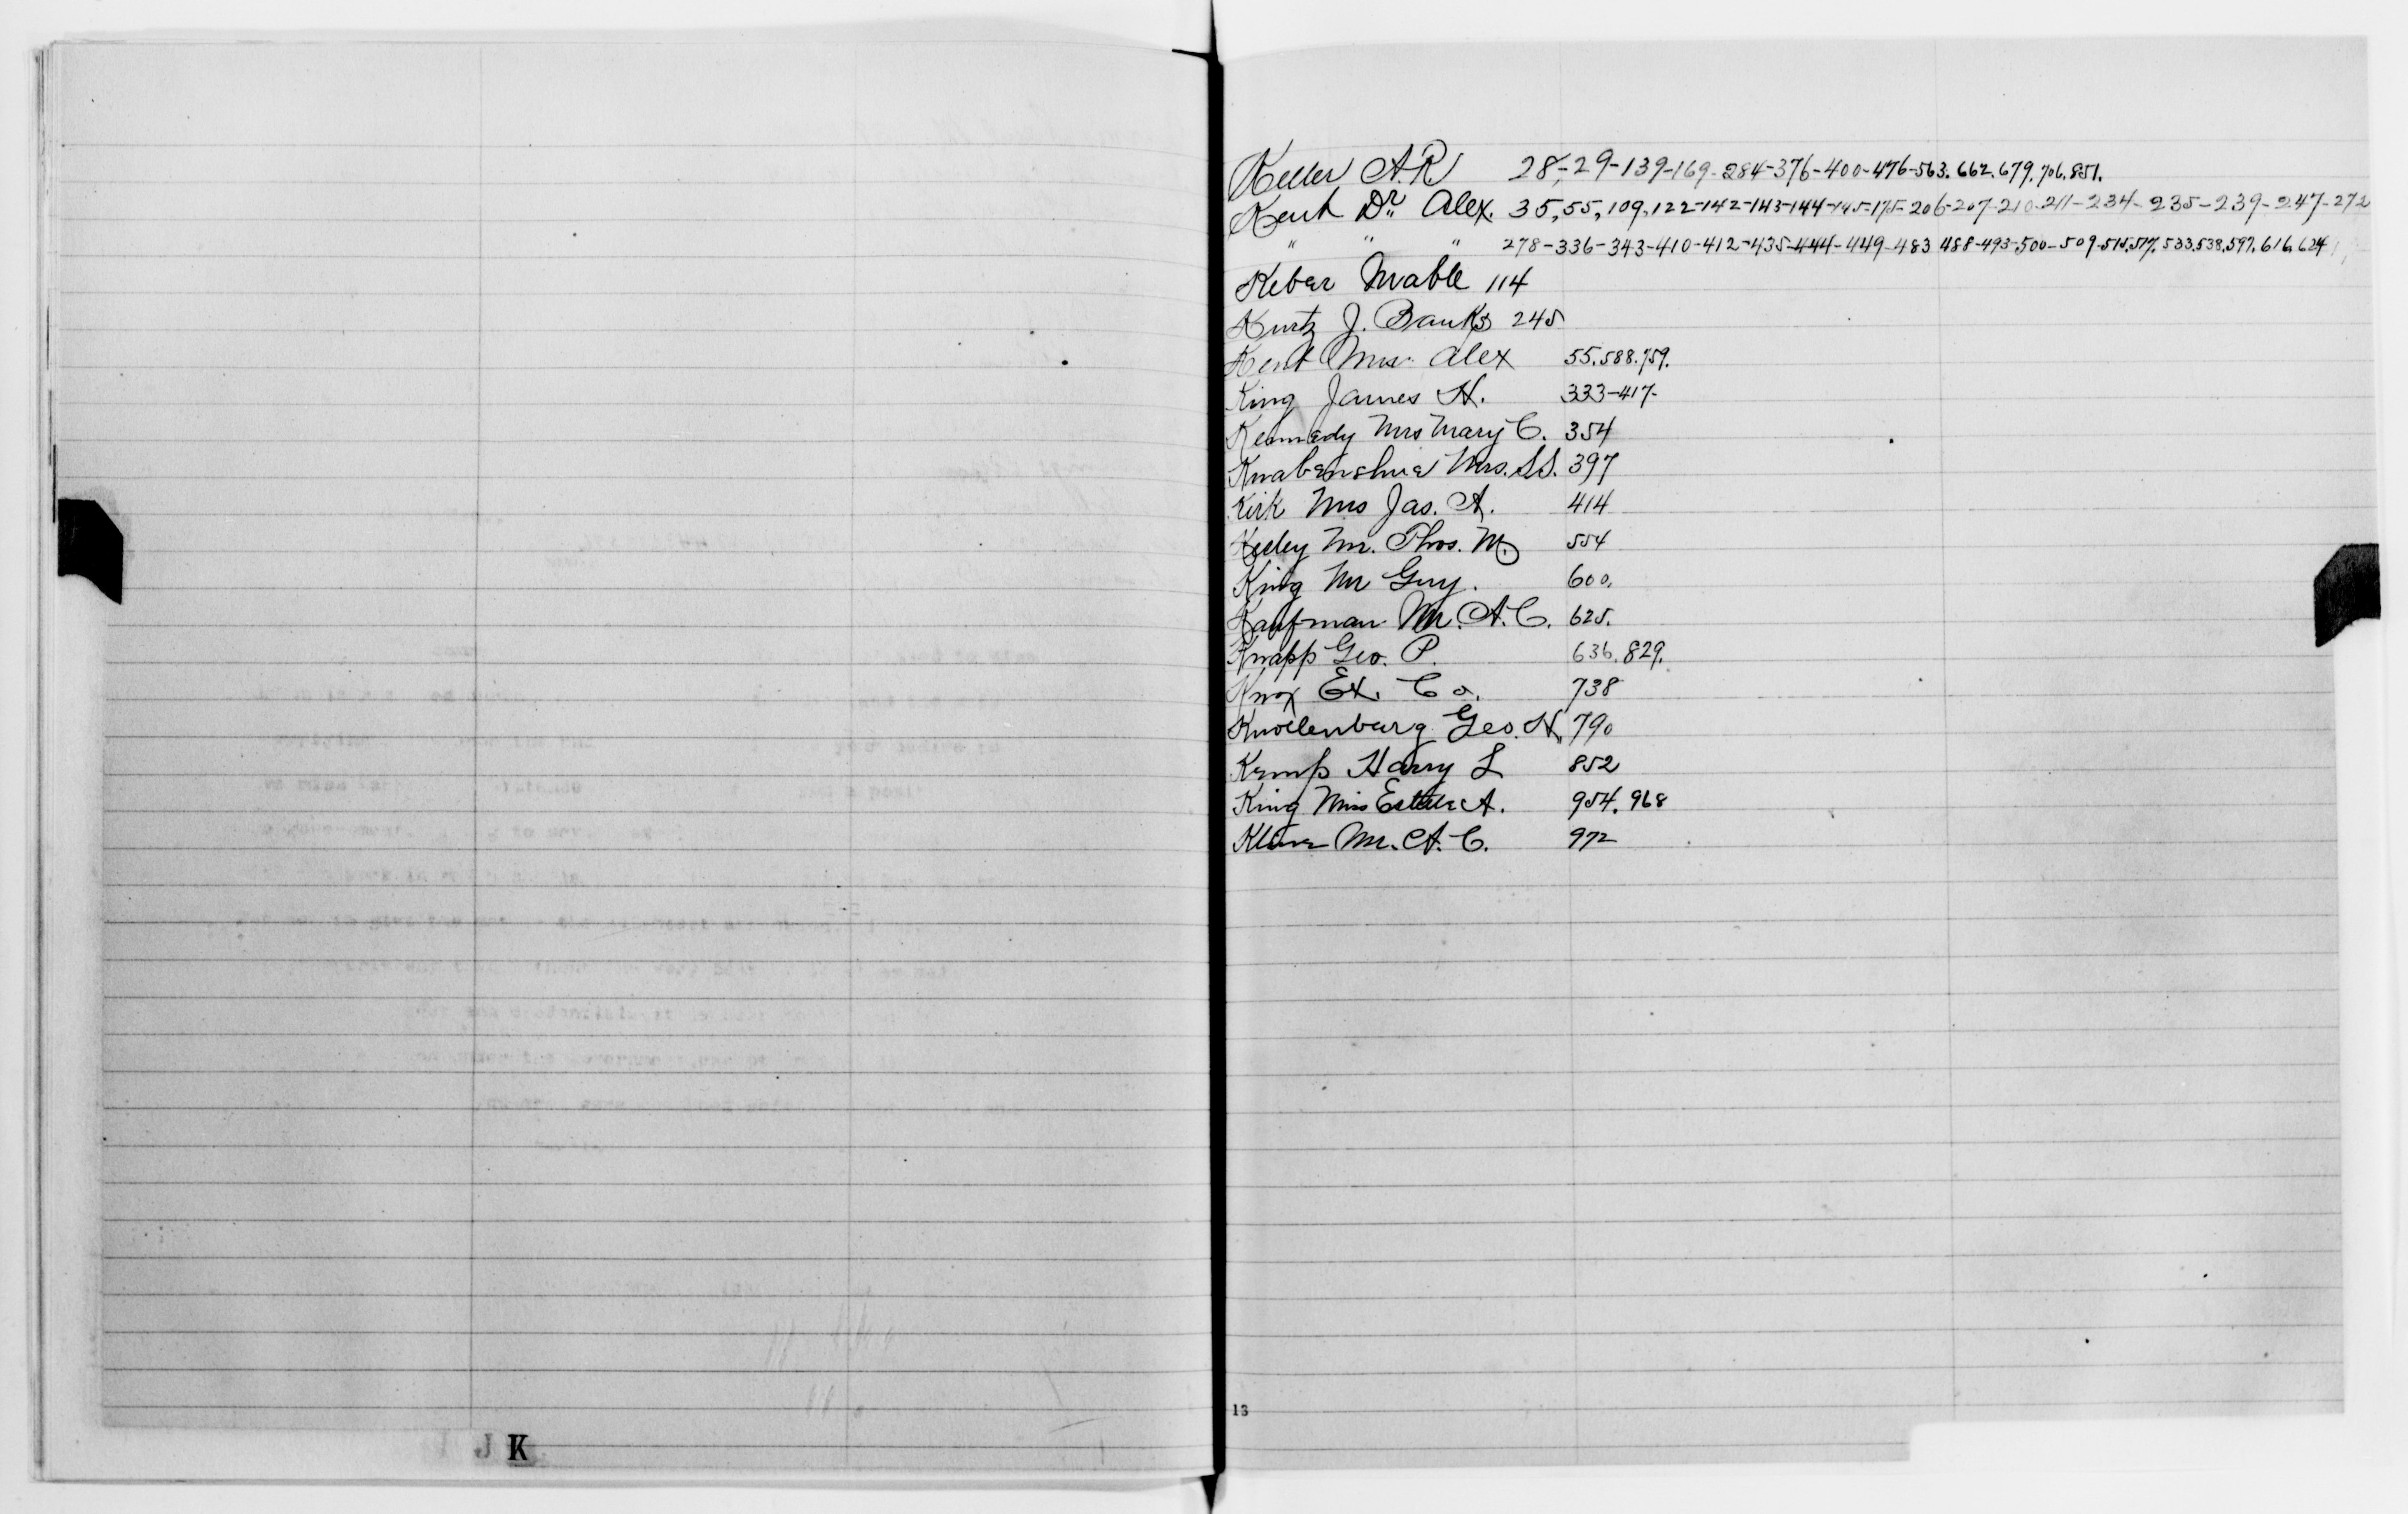 Keller A.R. 28-29-139-169-284-376-400-476-563.662.679.706.851.
Kent Dr. Alex. 35,55,109,122-142-143-144-145-175-206-207-210-211-234-235-239-247-272
" " " 278-336-343-410-412-435-444-449-483 488-493-500-509-515.517.533.538.597.616.624
Keber Mable 114
Kurtz J. Banks 245
Kent Mrs. Alex 55.588.759.
King James H. 333-417-
Kennedy Mrs Mary C. 354
Knabenshue Mrs. S.S. 397
Kirk Mrs Jas. A. 414
Keeley Mr. Thos. M. 554
King Mr Guy. 600.
Kaufman Mr. A.C. 625.
Knapp Geo. P. 636.829.
Knox Ex. Co. 738
Knollenburg Geo. H. 790
Kemp Harry L 852
King Miss Estelle A. 954.968
Kline Mr. A.C. 972
13
J K